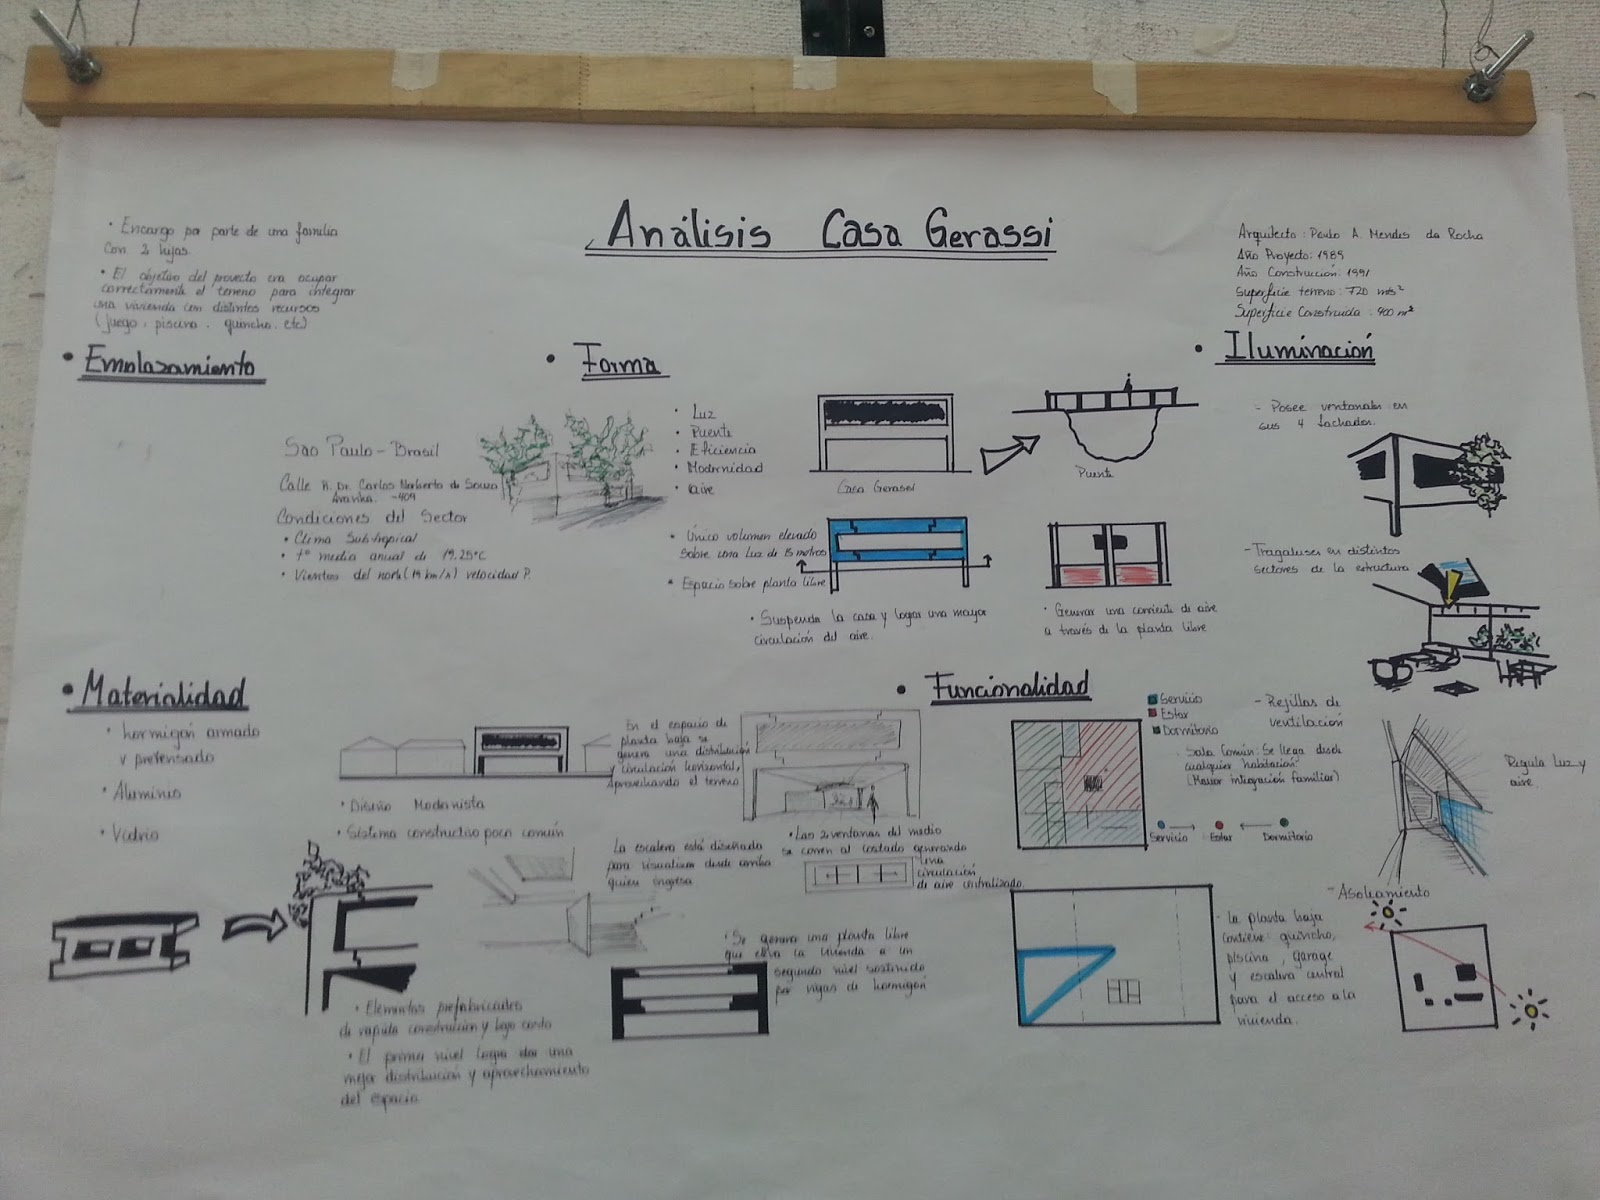 Análisis Casa Gerassi
• Encargo por parte de una familia
con 2 hijas.
• El objetivo del proyecto era ocupar
correctamente el terreno para integrar
una vivienda con distintos recursos
(juego, piscina, quincho, etc)
Arquitecto: Paulo A. Mendes da Rocha
Año Proyecto: 1989
Año Construcción: 1991
Superficie terreno: 720 mts²
Superficie Construida: 400 m²
• Emplazamiento
Sao Paulo - Brasil
Calle R. Dr. Carlos Norberto de Souza
Aranha. -409
Condiciones del Sector
• Clima Subtropical
• t° media anual de 19.25°C
• Vientos del norte (19 km/h) velocidad P.
• Forma
• Luz
• Puente
• Eficiencia
• Modernidad
• aire
Casa Gerassi
Puente
• Único volumen elevado
sobre una luz de 15 metros
• Espacio sobre planta libre
• Suspende la casa y lograr una mayor
circulación del aire.
• Generar una corriente de aire
a través de la planta libre
• Iluminación
- Posee ventanales en
sus 4 fachadas.
- Tragaluses en distintos
sectores de la estructura
- Rejillas de
ventilación
Regula Luz y
aire
- Asoleamiento
• Materialidad
• hormigón armado
y pretensado
• Aluminio
• Vidrio
• Diseño Modernista
• Sistema constructivo poco común
• Elementos prefabricados
de rapida construccion y bajo costo
• El primer nivel logra dar una
mejor distribución y aprovechamiento
del espacio
En el espacio de
planta baja se
genera una distribución
y circulación horizontal,
Aprovechando el terreno
La escalera está diseñada
para visualizar desde arriba
quien ingresa
• Las 2 ventanas del medio
se corren al costado generando
una
circulación
de aire centralizado.
• Se genera una planta libre
que eleva la vivienda a un
segundo nivel sostenido
por vigas de hormigón
• Funcionalidad
Servicio
Estar
Dormitorio
Sala Común: Se llega desde
cualquier habitación.
(Mayor integración familiar)
Servicio
Estar
Dormitorio
- La planta baja
contiene: quincho,
piscina, garage
y escalera central
para el acceso a la
vivienda.